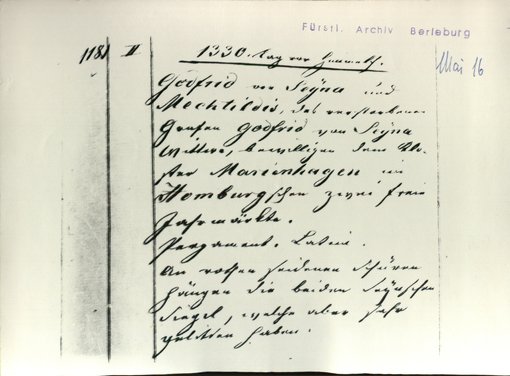 Fürstl. Archiv Berleburg
Mai 16
1181 II 1330. Tag vor
Godfrid von Seyna und
Mechtildis, des verstorbenen
Grafen Godfrid von Seyna
Wittwe, bewilligen dem Klo-
ster Marienhagen im
Homburgschen zwei freie
Jahrmärkte.
Pergament. Latein.
An rothen seidenen Schnüren
hängen die beiden Seynschen
Siegel, welche aber sehr
gelitten haben.